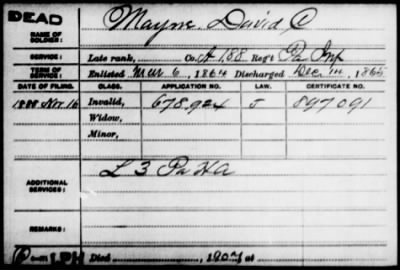 DEAD
NAME OF SOLDIER: Mayne, David C
SERVICE: Late rank, Co. A 188 Reg't Pa Inf
TERM OF SERVICE: Enlisted Mar 6, 1864 Discharged Dec 14, 1865
DATE OF FILING. CLASS. APPLICATION NO. LAW. CERTIFICATE NO.
1888 Nov. 16 Invalid, 678.924 J 897.091
Widow,
Minor,
ADDITIONAL SERVICES: L 3 Pa H A
REMARKS:
Died , 190 at